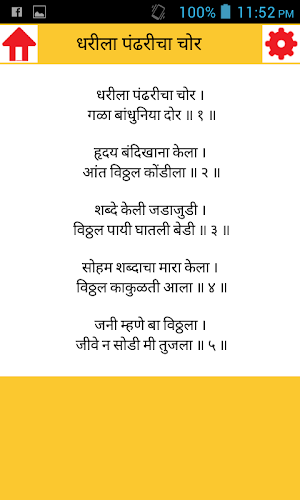 100% 11:52 PM
धरीला पंढरीचा चोर
धरीला पंढरीचा चोर ।
गळा बांधुनिया दोर ॥ १ ॥
हृदय बंदिखाना केला ।
आंत विठ्ठल कोंडीला ॥ २ ॥
शब्दे केली जडाजुडी ।
विठ्ठल पायी घातली बेडी ॥ ३ ॥
सोहम शब्दाचा मारा केला ।
विठ्ठल काकुळती आला ॥ ४ ॥
जनी म्हणे बा विठ्ठला ।
जीवे न सोडी मी तुजला ॥ ५ ॥